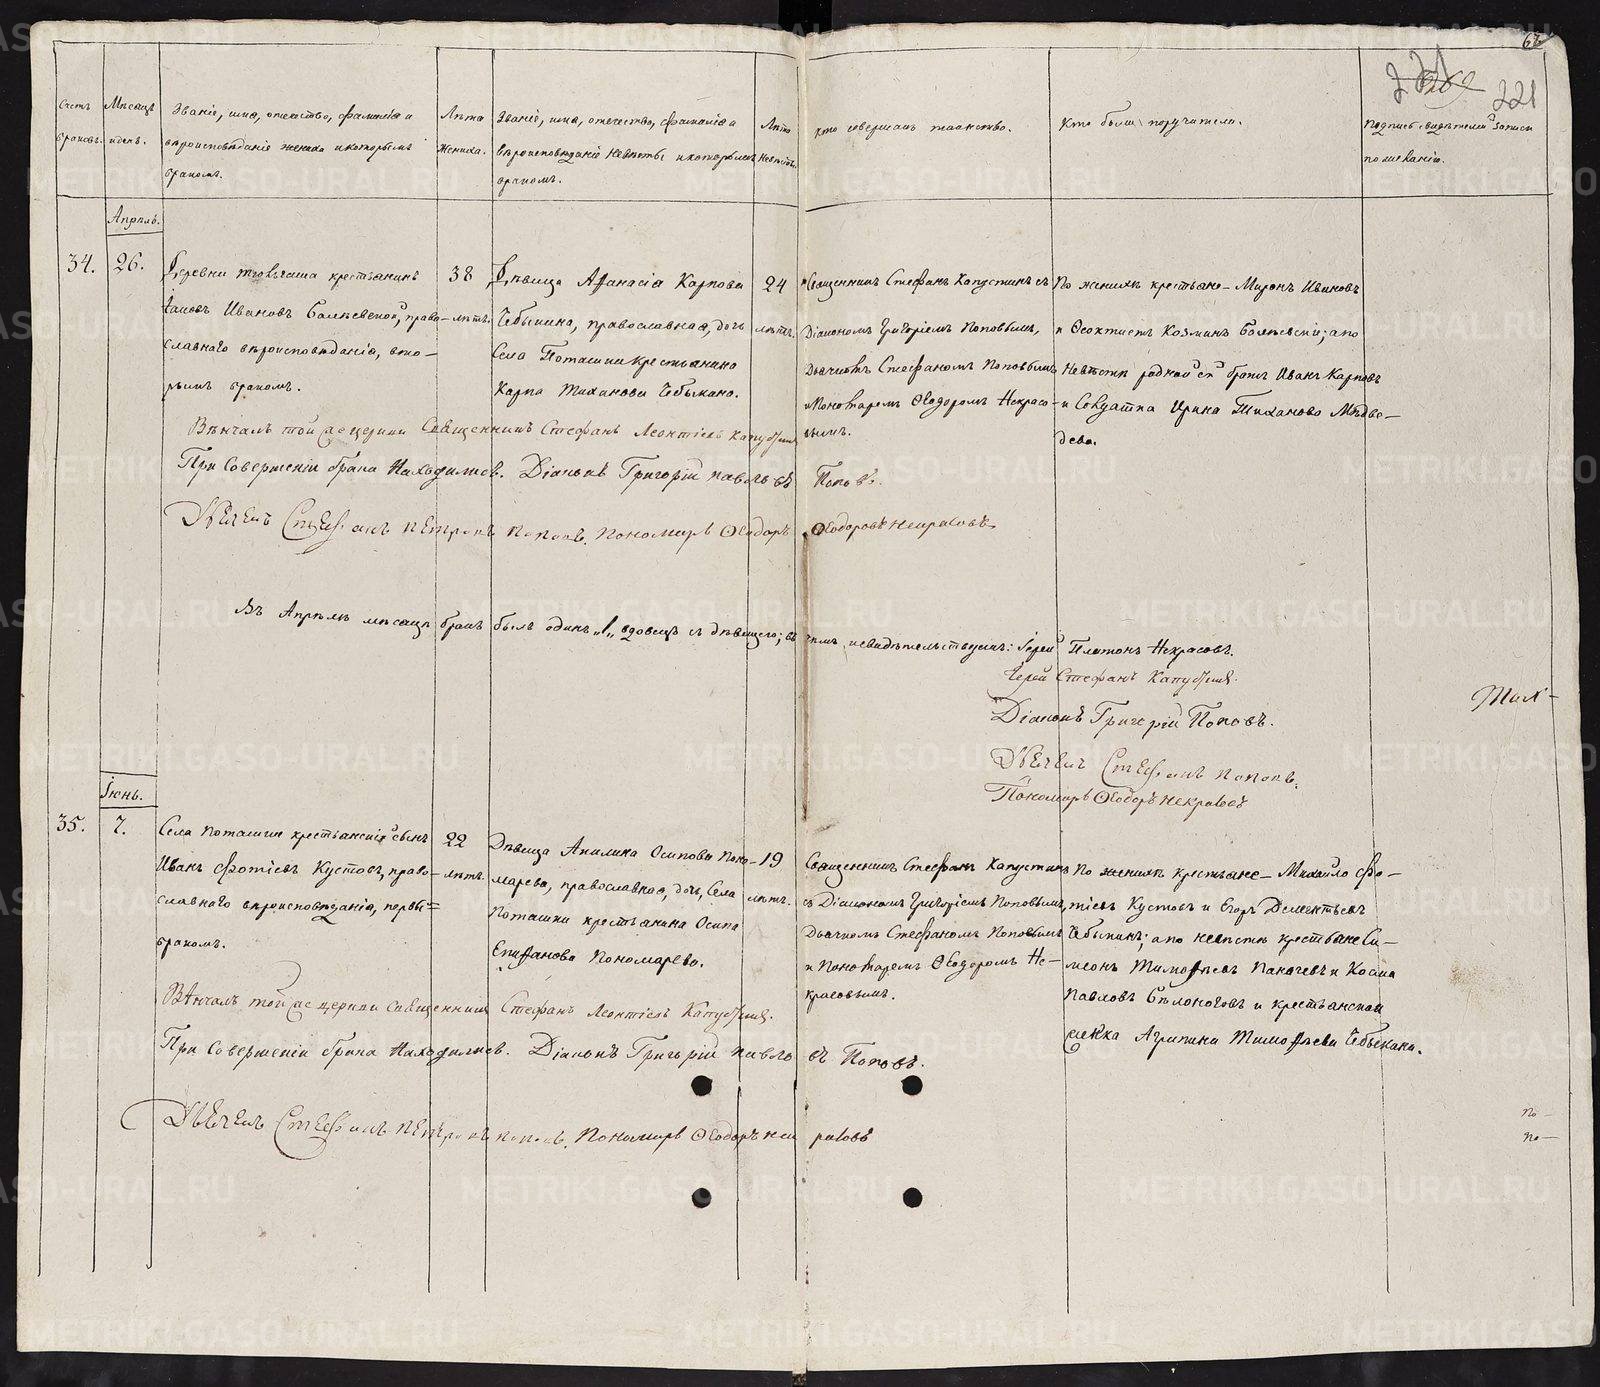 68
221
Счетъ браковъ.
Мѣсяцъ и день.
Званіе, имя, отчество, фамилія и
вѣроисповѣданіе жениха и которымъ
бракомъ.
Лѣта
жениха.
Званіе, имя, отечество, фамилія и
вѣроисповѣданіе невѣсты и которымъ
бракомъ.
Лѣта
невѣсты.
Кто совершалъ таинство.
Кто были поручители.
Подпись свидѣтелей записи
по желанію.
Апрѣль.
34.
26.
Деревни крестьянинъ
Іаковъ Ивановъ право-
славнаго вѣроисповѣданія, вто-
рымъ бракомъ.
38
лѣтъ.
Дѣвица Афанасія Карпова
Чебыкина, православная, дочь
Села Поташки крестьянина
Карпа Тиханова Чебыкина.
24
лѣтъ.
Священникъ Стефанъ Капустинъ съ
Діакономъ Григоріемъ Поповымъ,
Дьячкомъ Стефаномъ Поповымъ
и Пономаремъ Ѳеодоромъ Некрасо-
вымъ.
По женихѣ крестьяне – Миронъ Ивановъ
и Ѳеоктистъ Козминъ а по
невѣстѣ родной ея братъ Иванъ Карповъ
и Ирина Тиханова Мѣдвѣ-
дева.
Вѣнчалъ той же церкви Священникъ Стефанъ Леонтіевъ Капустинъ
При Совершеніи брака Находились. Діаконъ Григорій Павловъ Поповъ.
Дьячекъ Стефанъ Петровъ Поповъ. Пономарь Ѳеодоръ Ѳеодоровъ Некрасовъ.
Въ Апрѣлѣ мѣсяцѣ бракъ былъ одинъ „1„ вдовецъ съ дѣвицею; въ чемъ и свидѣтельствуемъ: Іерей Платонъ Некрасовъ.
Іерей Стефанъ Капустинъ.
Діаконъ Григорій Поповъ.
Дьячекъ Стефанъ Поповъ.
Пономарь Ѳеодоръ Некрасовъ
Іюнь.
35.
7.
Села Поташки крестьянскій сынъ
Иванъ Фотіевъ Кустовъ, право-
славнаго вѣроисповѣданія, первы=
бракомъ.
22
лѣтъ.
Дѣвица Акилина Осипова Поно-
марева, православная, дочь, Села
Поташки крестьянина Осипа
Епифанова Пономарева.
19
лѣтъ.
Священникъ Стефанъ Капустинъ
съ Діакономъ Григоріемъ Поповымъ,
Дьячкомъ Стефаномъ Поповымъ
и Пономаремъ Ѳеодоромъ Не-
красовымъ.
По женихѣ крестьяне – Михайло Фо-
тіевъ Кустовъ и Егоръ Дементьевъ
Чебыкинъ; а по невѣстѣ крестьяне Си-
меонъ Тимофѣевъ и Косма
Павловъ Бѣлоноговъ и крестьянская
женка Агрипина Тимофѣева Чебыкина.
Вѣнчалъ той же церкви Священникъ Стефанъ Леонтіевъ Капустинъ.
При Совершеніи брака Находились. Діаконъ Григорій Павловъ Поповъ.
Дьячекъ Стефанъ Петровъ Поповъ. Пономарь Ѳеодоръ Некрасовъ
По –
По –
METRIKI.GASO-URAL.RU